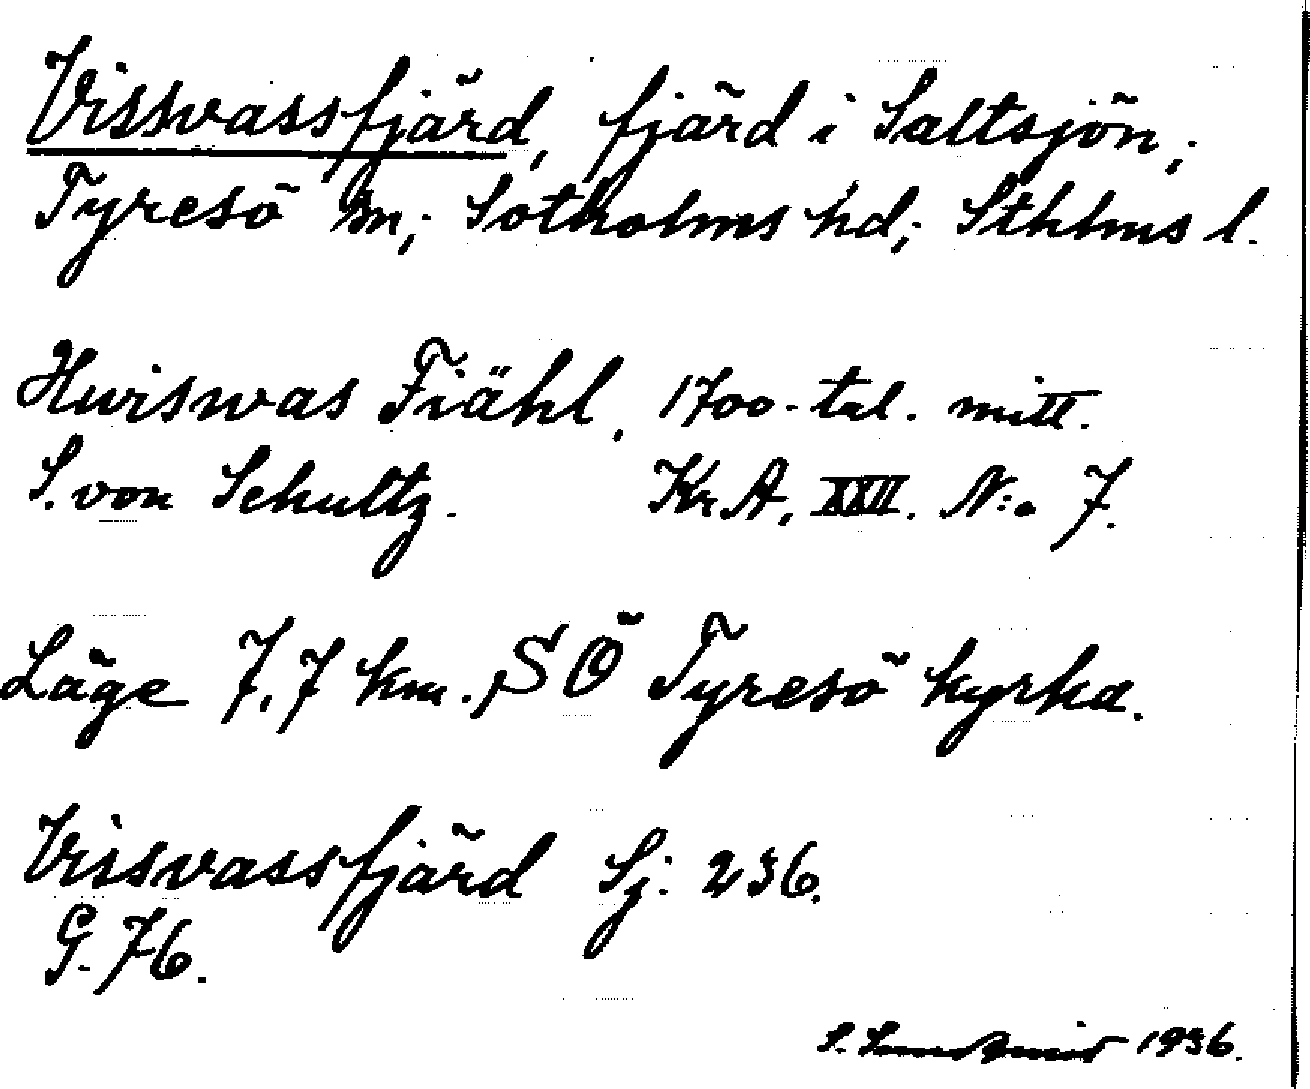 Vissvassfjärd, fjärd i Saltsjön;
Tyresö sn; Sotholms hd; Sthlms l.
Hwiswas Fiähl, 1700-tal. mitt.
S. von Schultz. Kr.A. XXII. N:o 7.
Läge 7,7 km. SÖ Tyresö kyrka.
Vissvassfjärd Sj. 236.
G. 76.
S. 1936.